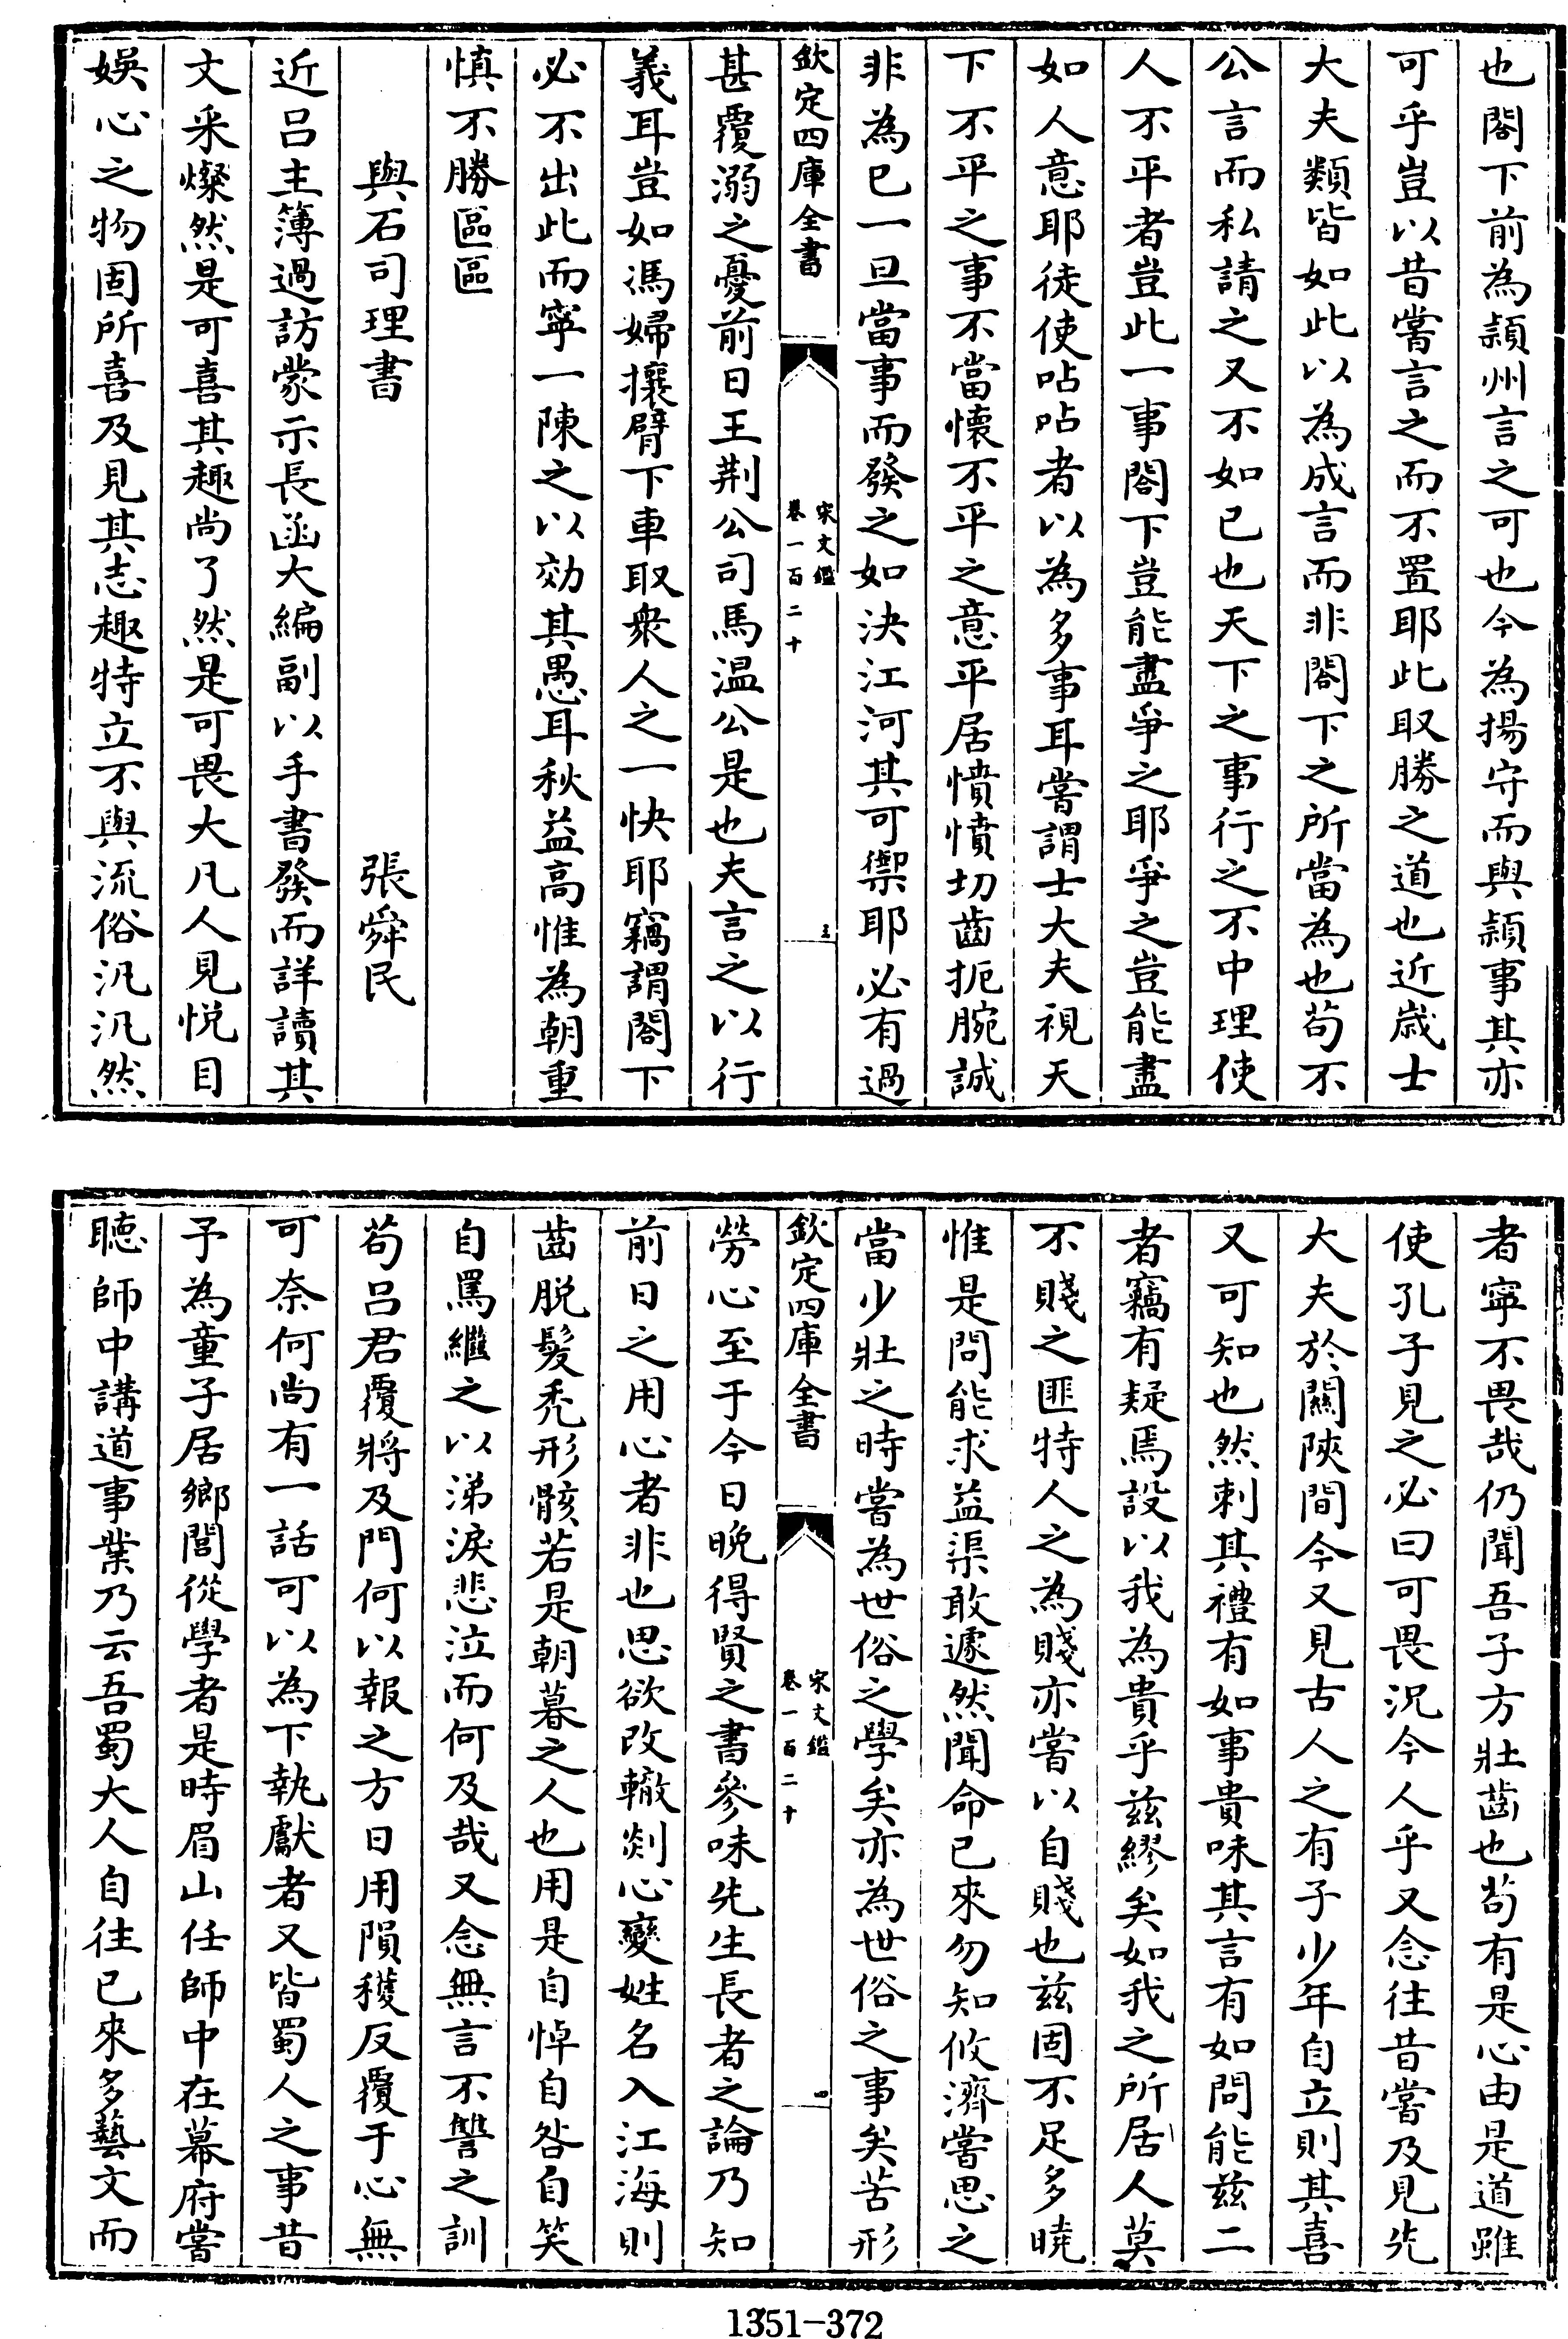 也閣下前為頴州言之可也今為揚守而與頴事其亦
可乎豈以昔嘗言之而不置耶此取勝之道也近歲士
大夫類皆如此以為成言而非閣下之所當為也茍不
公言而私請之又不如已也天下之事行之不中理使
人不平者豈此一事閣下豈能盡爭之耶爭之豈能盡
如人意耶徒使呫呫者以為多事耳嘗謂士大夫視天
下不平之事不當懷不平之意平居憤憤切齒扼腕誠
非為已一旦當事而發之如決江河其可禦耶必有過
欽定四庫全書
宋文鑑
卷一百二十
三
甚覆溺之憂前日王荆公司馬溫公是也夫言之以行
義耳豈如馮婦攘臂下車取衆人之一快耶竊謂閣下
必不出此而寧一陳之以効其愚耳秋益高惟為朝重
慎不勝區區
與石司理書 張舜民
近呂主簿過訪蒙示長函大編副以手書發而詳讀其
文采燦然是可喜其趣尚了然是可畏大凡人見悦目
娛心之物固所喜及見其志趣特立不與流俗汎汎然
者寧不畏哉仍聞吾子方壯齒也茍有是心由是道雖
使孔子見之必曰可畏況今人乎又念往昔嘗及見先
大夫於關陜間今又見古人之有子少年自立則其喜
又可知也然刺其禮有如事貴味其言有如問能兹二
者竊有疑焉設以我為貴乎兹繆矣如我之所居人莫
不賤之匪特人之為賤亦嘗以自賤也兹固不足多曉
惟是問能求益渠敢遽然聞命已來勿知攸濟嘗思之
當少壯之時嘗為世俗之學矣亦為世俗之事矣苦形
欽定四庫全書
宋文鑑
卷一百二十
四
勞心至于今日晚得賢之書參味先生長者之論乃知
前日之用心者非也思欲改轍剡心變姓名入江海則
齒脱髮秃形骸若是朝暮之人也用是自悼自咎自笑
自罵繼之以涕淚悲泣而何及哉又念無言不讐之訓
茍呂君覆將及門何以報之方日用隕穫反覆于心無
可奈何尚有一話可以為下執獻者又皆蜀人之事昔
予為童子居鄉閭從學者是時眉山任師中在幕府嘗
聴師中講道事業乃云吾蜀大人自往已來多藝文而
1351-372